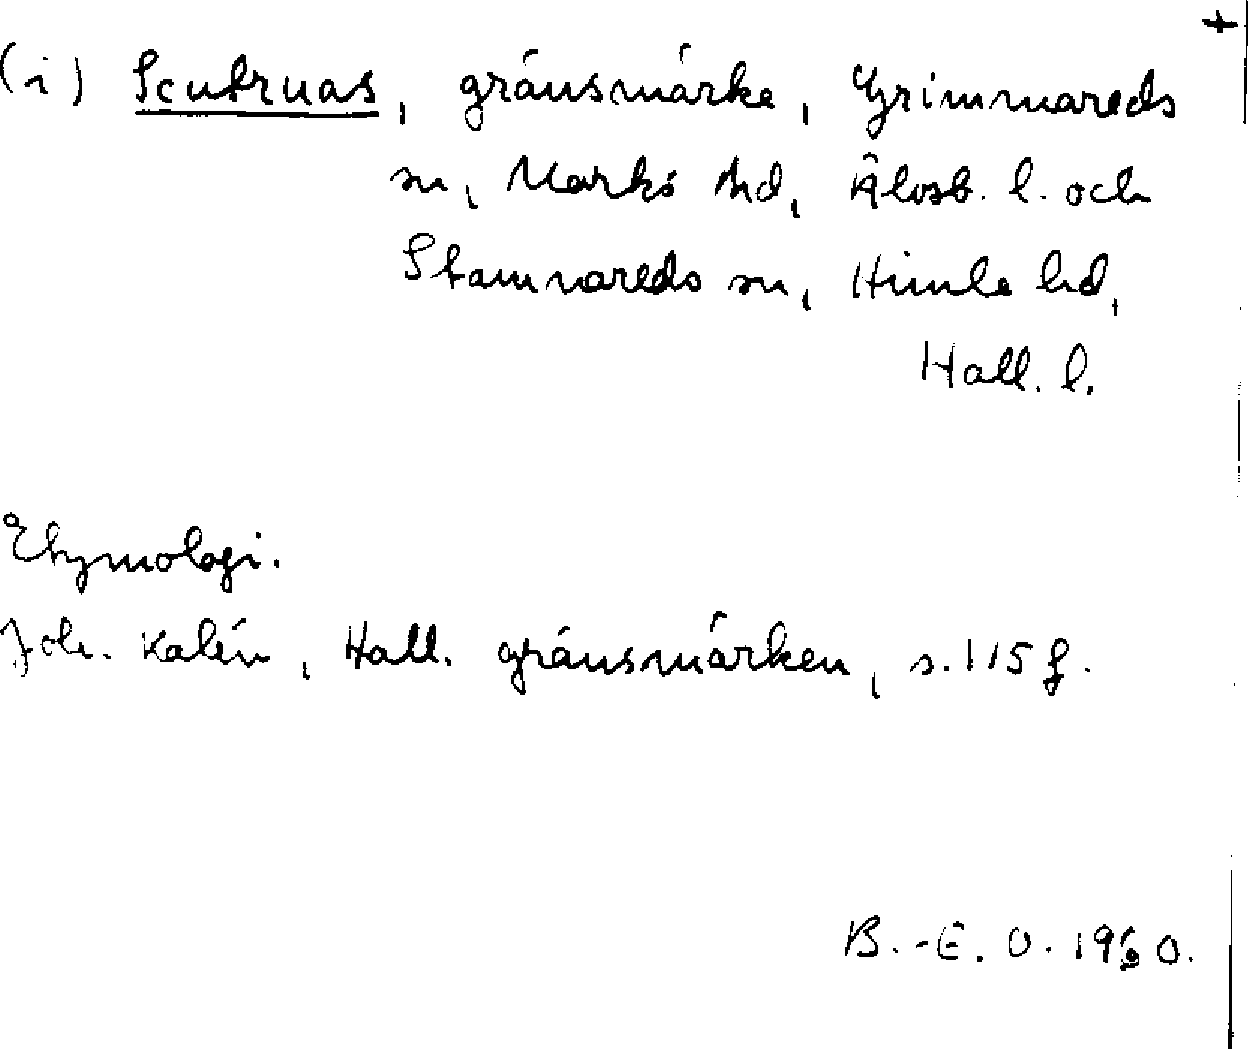 +
(i) Scutruas, gränsmärke, Grimmareds
sn, Marks hd, Älvsb. l. och
Stamnareds sn, Himle hd,
Hall. l.
Etymologi.
Joh. Kalén, Hall. gränsmärken, s. 115 f.
B.-E. O. 1960.